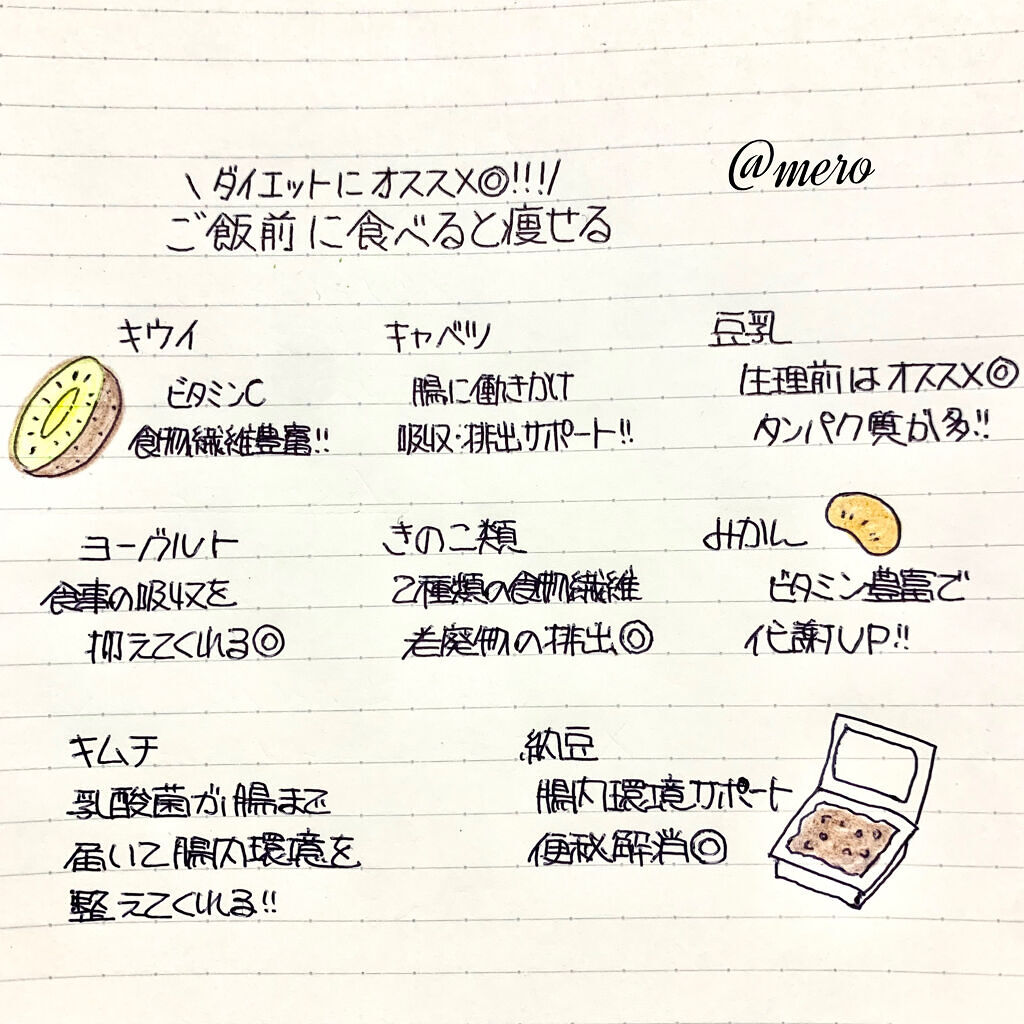 \ダイエットにオススメ◎!!!/
@mero
ご飯前に食べると痩せる
キウイ
ビタミンC
食物繊維豊富!!
キャベツ
腸に働きかけ
吸収・排出サポート!!
豆乳
生理前はオススメ◎
タンパク質が多!!
ヨーグルト
食事の吸収を
抑えてくれる◎
きのこ類
2種類の食物繊維
老廃物の排出◎
みかん
ビタミン豊富で
代謝UP!!
キムチ
乳酸菌が腸まで
届いて腸内環境を
整えてくれる!!
納豆
腸内環境サポート
便秘解消◎